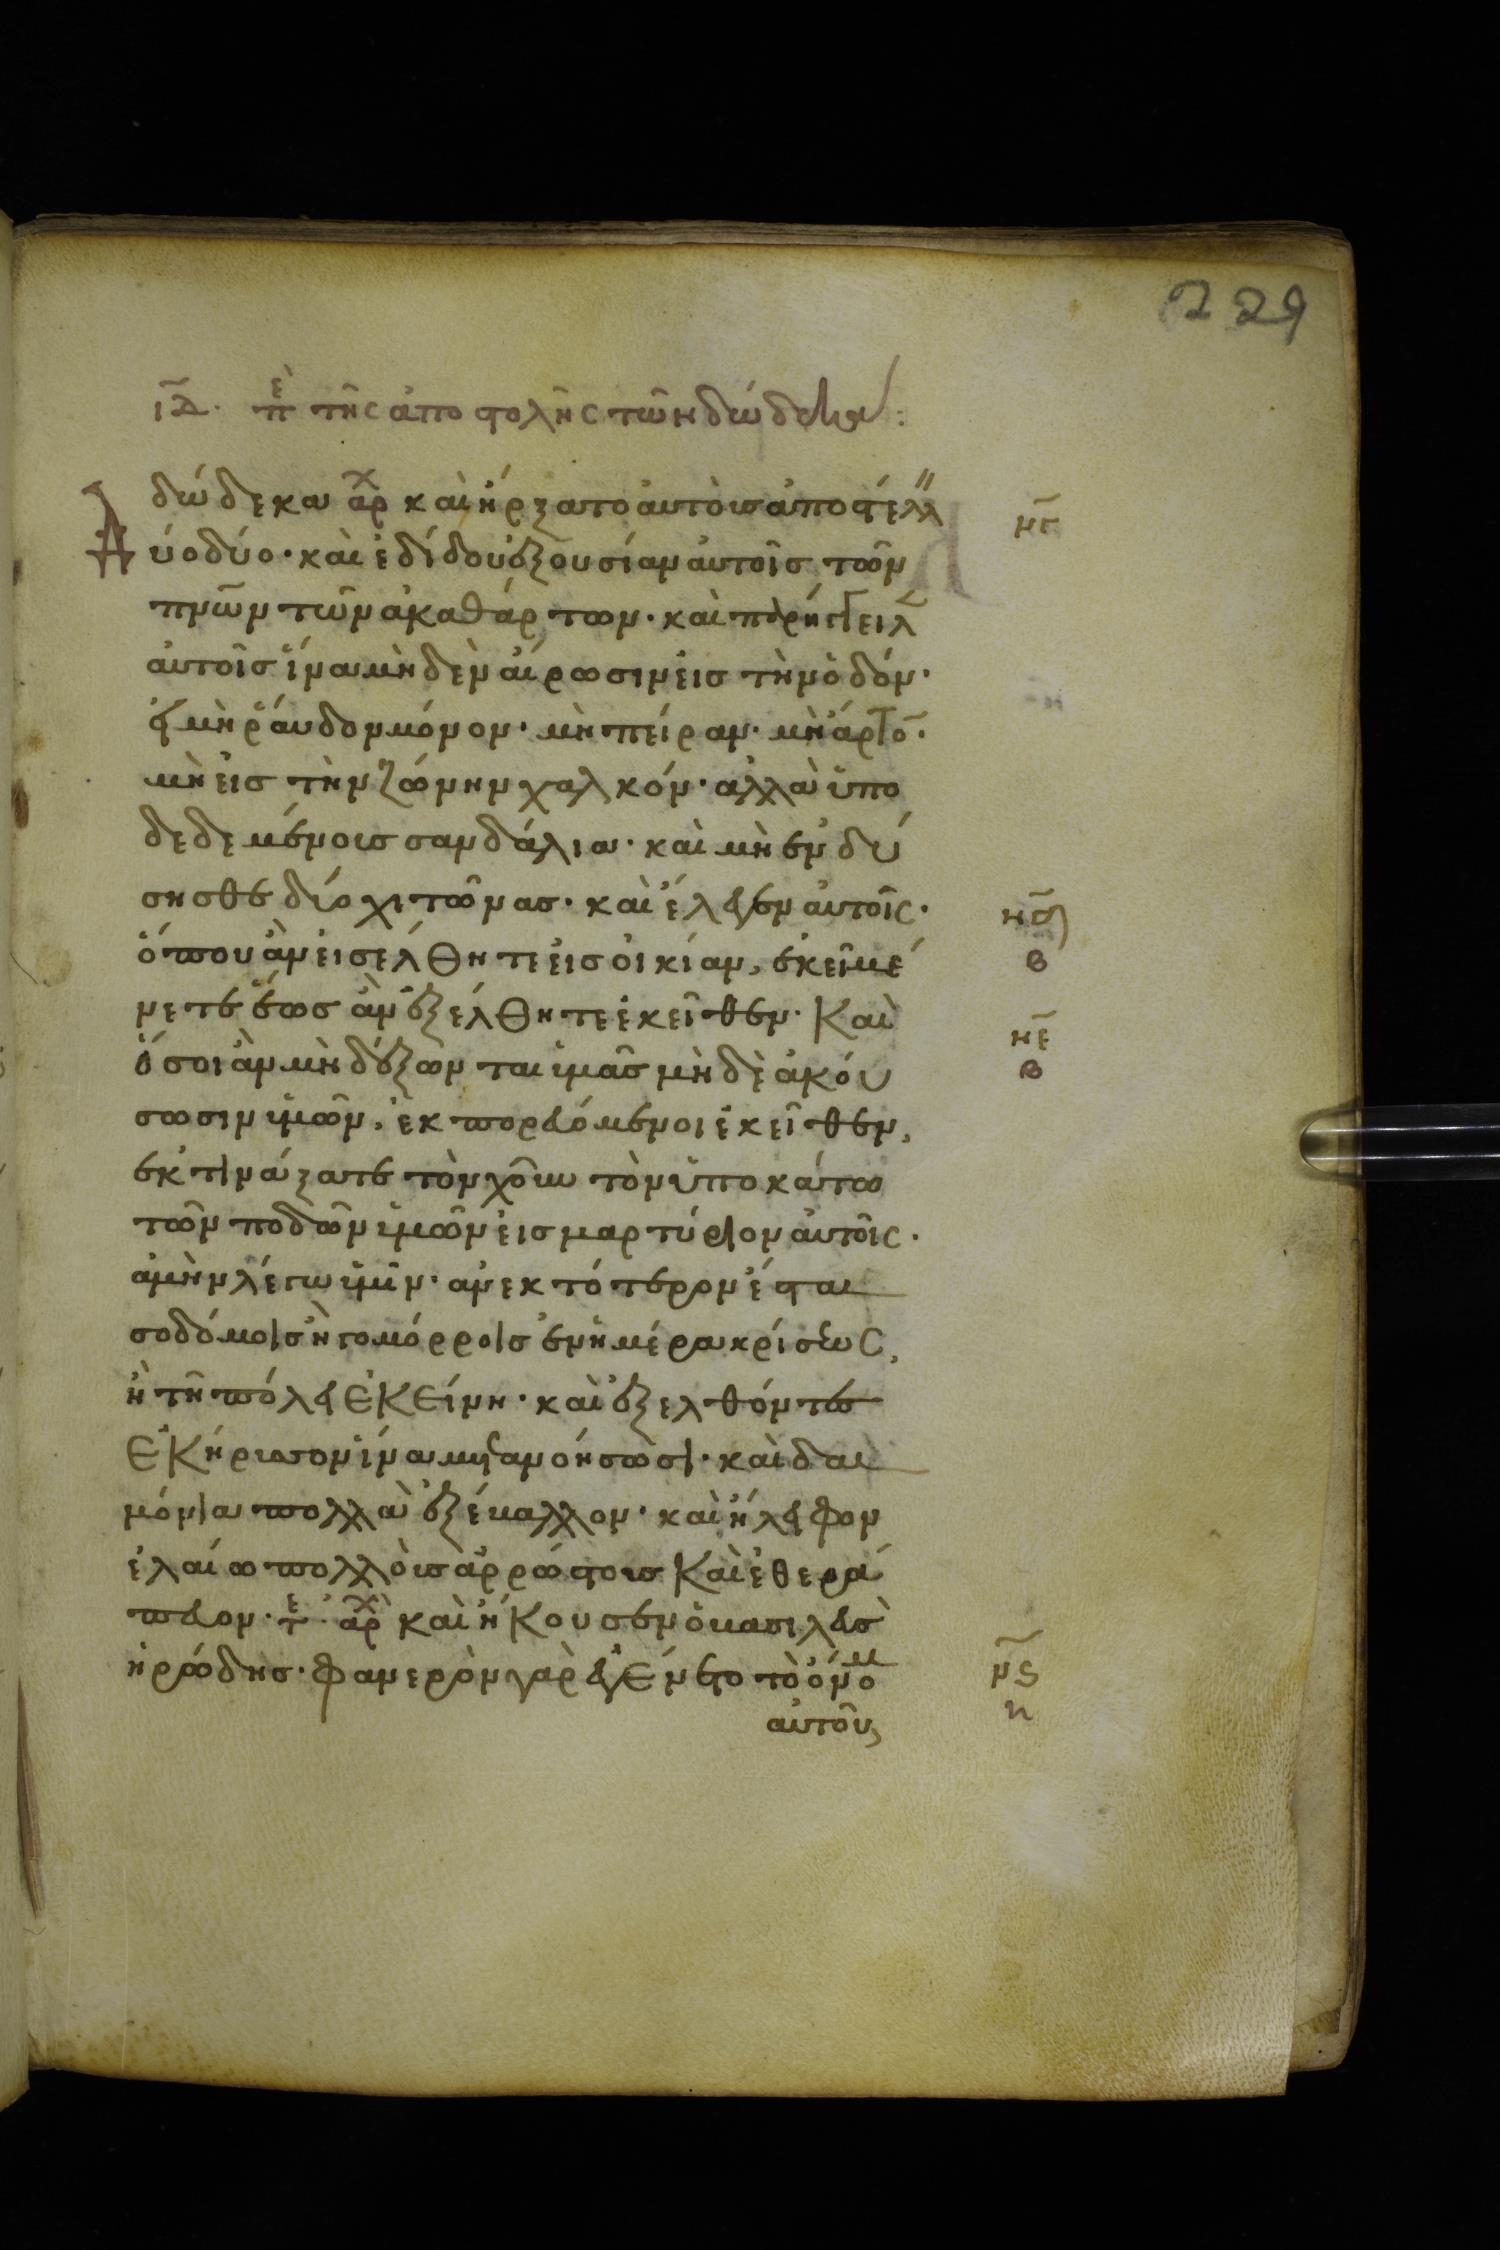 229
ιδ. πε τῆς ἀποστολῆς τῶν δώδεκα:
δώδεκα αρχ καὶ ἤρξατο ἀυτοὺσ ἀποστέλλ
Δύο δύο· καὶ ἐδίδου ἐξουσίαν ἀυτοῖσ τῶν
πνῶν τῶν ἀκαθάρτων· καὶ παρήγγειλ
ἀυτοῖσ ἵνα μὴδὲν ἀίρωσιν ἐισ τὴν ὁδόν·
εἰ μὴ ῥάβδον μόνον· μὴ πείραν· μὴ ἄρτο̄·
μὴ ἐισ τὴν ζώνην χαλκόν· αλλὰ ὑπο
δεδεμένοισ σανδάλια· καὶ μὴ ἐνδύ
σησθε δύο χιτῶνασ· καὶ ἔλεγεν ἀυτοῖς·
ὅπου ἀν ἐισέλθητε ἐισ οἰκίαν, ἐκεῖ μέ
νετε ἕωσ ἀν ἐξέλθητε ἐκεῖθεν· Καὶ
ὅσοι ἀν μὴ δέξωνται ὑμᾶσ μὴδὲ ἀκόυ
σωσιν ὑμῶν, ἐκπορευόμενοι ἐκεῖθεν,
ἐκτινάξατε τὸν χοῦν τὸν ὑποκάτω
τῶν ποδῶν ὑμῶν ἐισ μαρτύριον ἀυτοῖς·
ἀμὴν λέγω ὑμῖν· ἀνεκτότερον ἔσται
σοδόμοισ ἢ γομόρροισ ἐν ἡμέρα κρίσεως,
ἢ τῆ πόλει ἐκείνη· καὶ ἐξελθόντεσ
ἐκήρυσσον ἵνα μεταμοήσωσι· καὶ δαι
μόνια πολλὰ ἐξέβαλλον· καὶ ἤλειφον
ἐλαίω πολλοὺσ ἀρρώστουσ Καὶ ἐθερά
πευον· τε αρχ καὶ ἤκουσεν ὁ βασιλεὺσ
ἡρώδησ· φανερὸν γὰρ ἐγένετο τὸ ὄνομ
ἀυτοῦ,
μγ
νδ
β
νε
β
νς
η